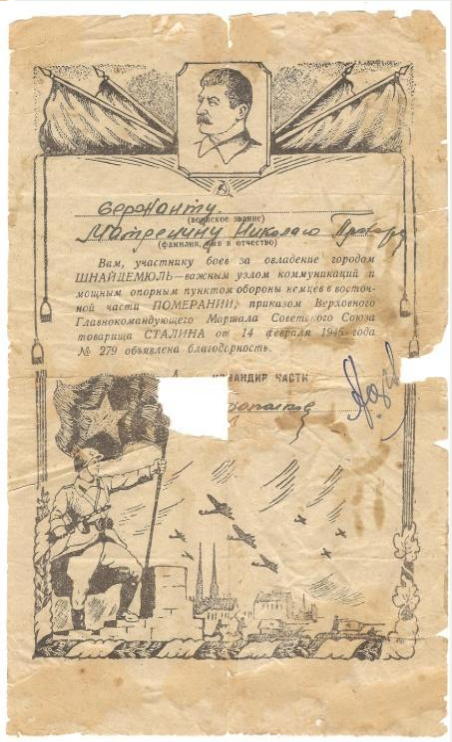 сержанту
(воинское звание)
Матренину Николаю
(фамилия, имя и отчество)
Вам, участнику боев за овладение городом
ШНАЙДЕМЮЛЬ—важным узлом коммуникаций и
мощным опорным пунктом обороны немцев в восточ-
ной части ПОМЕРАНИИ, приказом Верховного
Главнокомандующего Маршала Советского Союза
товарища СТАЛИНА от 14 февраля 1945 года
№ 279 объявлена благодарность.
КОМАНДИР ЧАСТИ